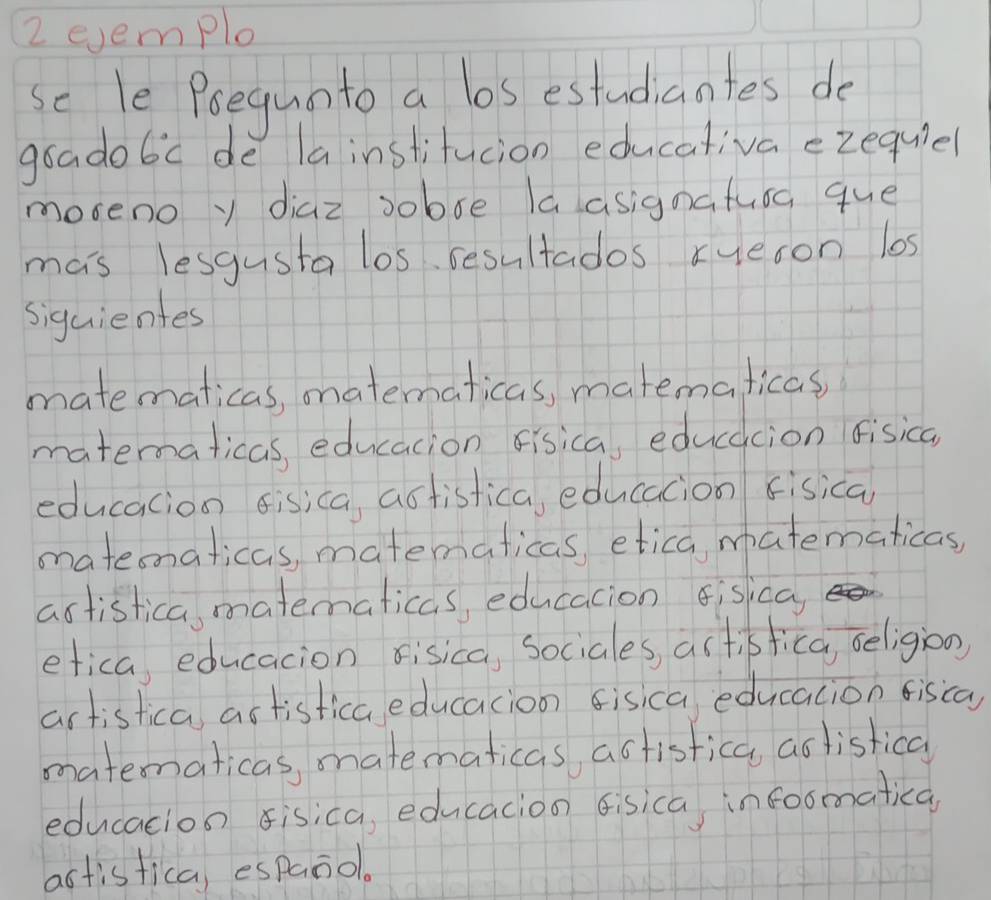 2 ejemplo
se le Pregunto a los estudiantes de
grado 6c de la institucion educativa ezequiel
moreno y diaz sobre la asignatura que
más lesgusta los resultados fueron los
siguientes
matematicas, matematicas, matematicas,
matematicas, educacion fisica, educacion fisica,
educacion fisica, artistica, educacion fisica,
matematicas, matematicas, etica, matematicas,
artistica, matematicas, educacion fisica,
etica, educacion fisica, Sociales, artistica, religion,
artistica, artistica, educacion fisica, educacion fisica,
matematicas, matematicas, artistica, artistica,
educacion fisica, educacion fisica, informatica,
artistica, español.